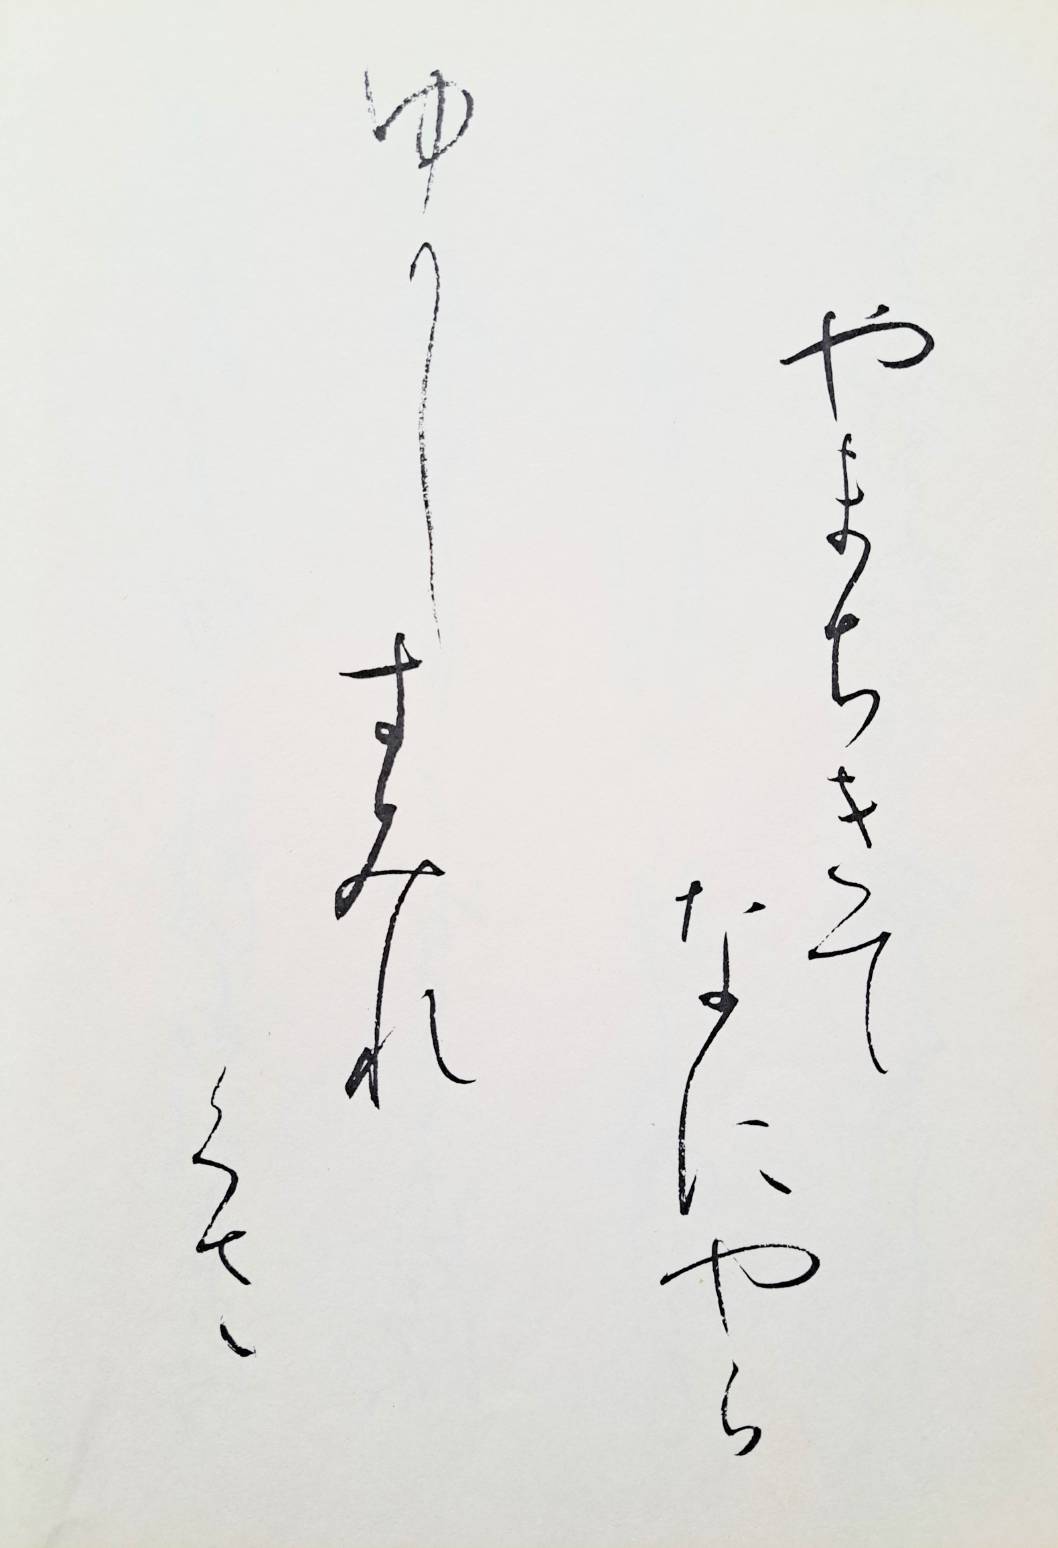 やまちきて
なにやら
ゆかしすみれ
くさ